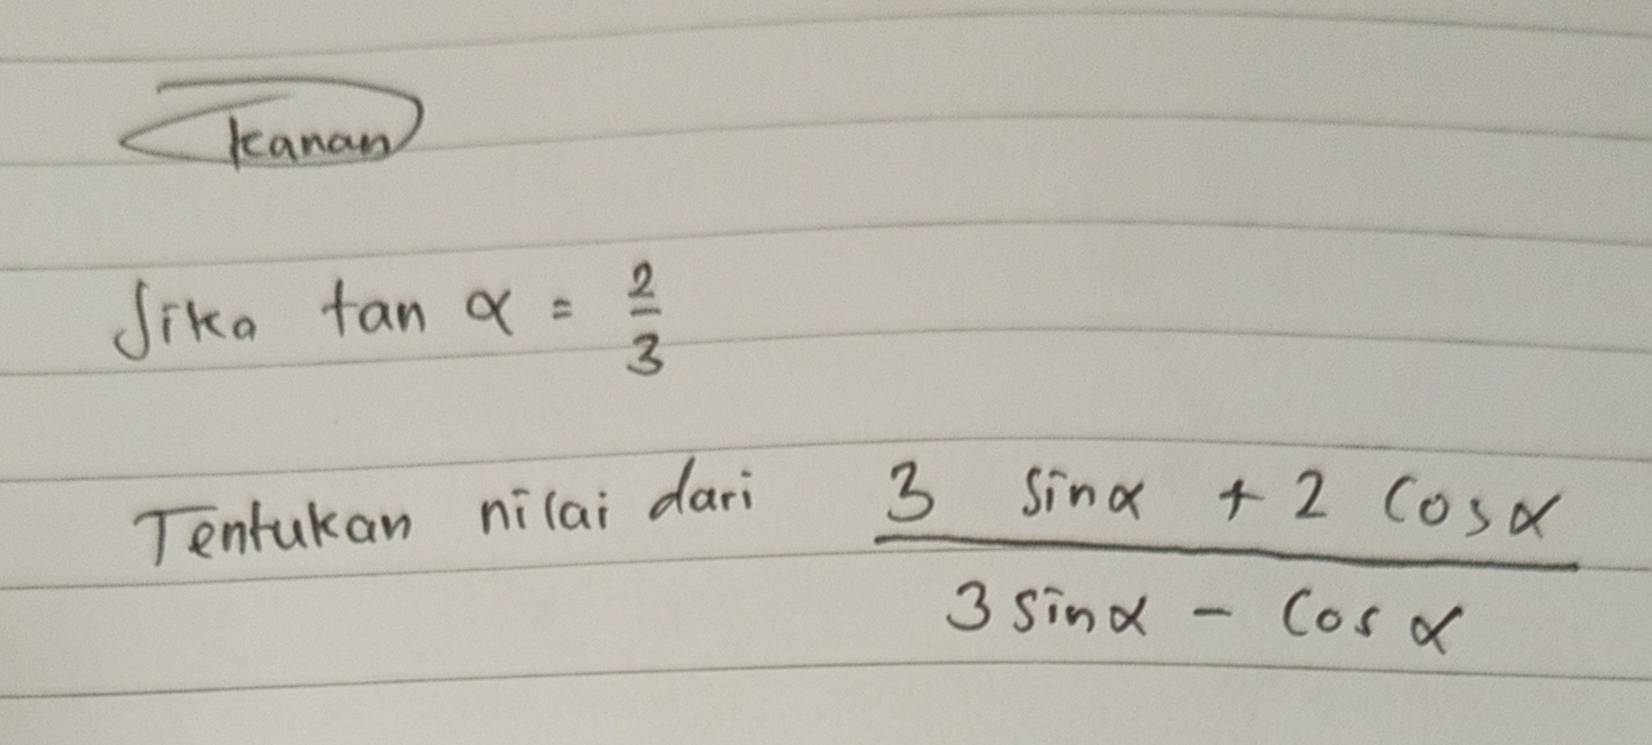 kanan
Jika tan α = 2/3
Tentukan nilai dari (3 sin α + 2 cos α)/(3 sin α - cos α)